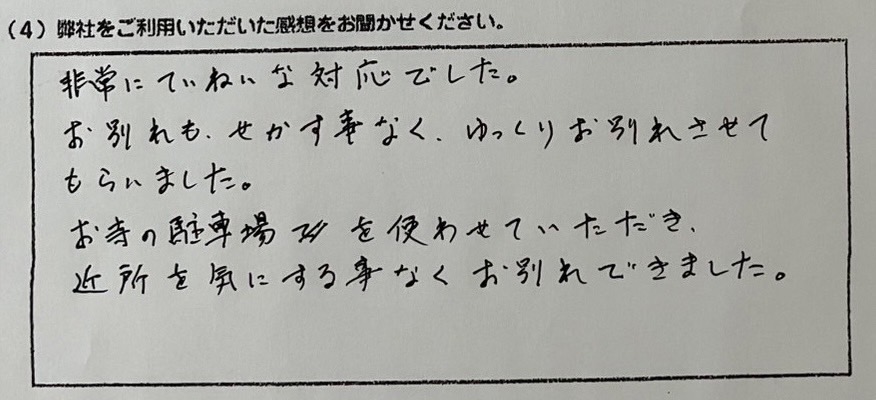 （4）弊社をご利用いただいた感想をお聞かせください。
非常にていねいな対応でした。
お別れも、せかす事なく、ゆっくりお別れさせて
もらいました。
お寺の駐車場を使わせていただき、
近所を気にする事なくお別れできました。